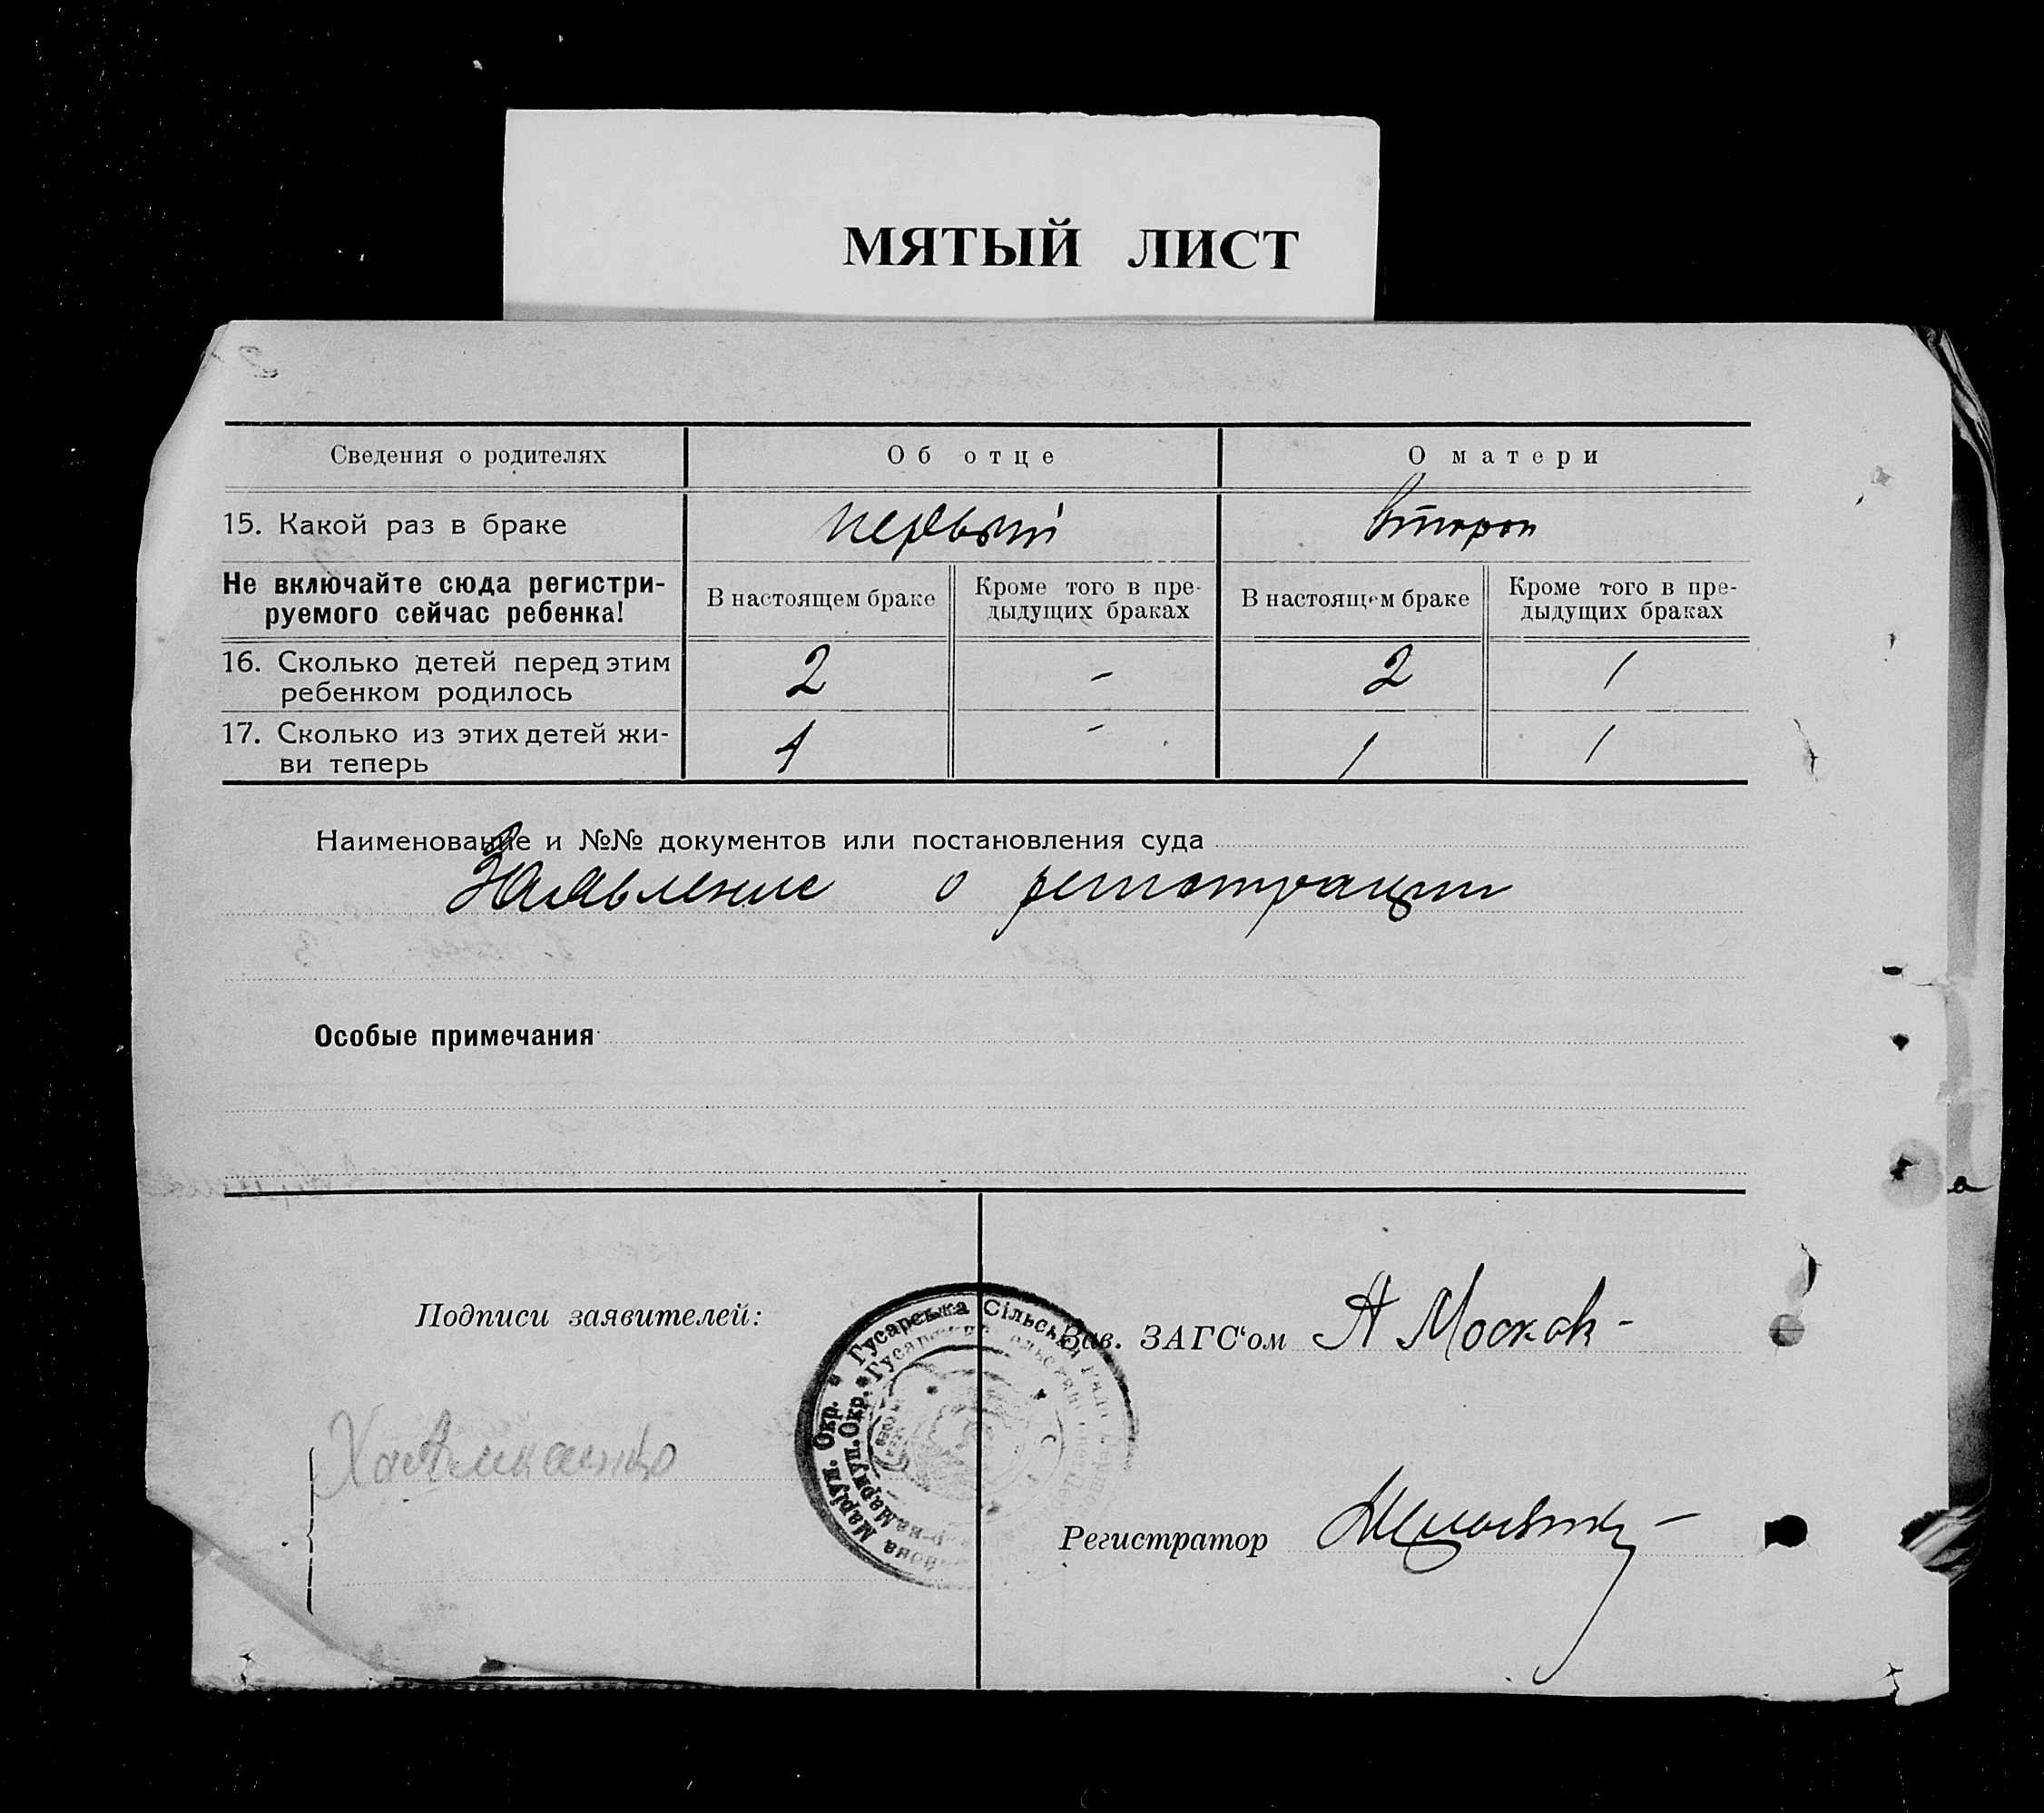 МЯТЫЙ ЛИСТ
Сведения о родителях Об отце О матери
15. Какой раз в браке первый второй
Не включайте сюда регистри-
руемого сейчас ребенка!
В настоящем браке
Кроме того в пре-
дыдущих браках
В настоящем браке
Кроме того в пре-
дыдущих браках
16. Сколько детей перед этим
ребенком родилось
2 - 2 1
17. Сколько из этих детей жи-
ви теперь
1 - 1 1
Наименование и №№ документов или постановления суда
Заявление о регистрации
Особые примечания
Подписи заявителей:
Гусарська Сільська Рада
Маріуп. Окр.
Зав. ЗАГС‘ом А Москов-
Регистратор